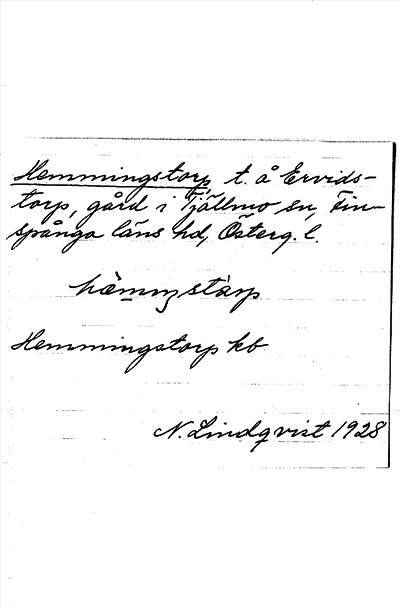 Hemmingstorp, t. å Ervids-
torp, gård i Tjällmo sn, Fin-
spånga läns hd, Österg. l.
hæ̀mıŋstårp
Hemmingstorp kb
N. Lindqvist 1928